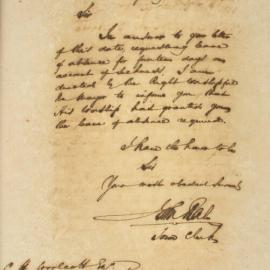 Sir
In answer to your letter
of this date, requesting leave
of absence for fourteen days on
account of sickness, I am
directed by the Right Worshipful
the Mayor to inform you that
His Worship has granted you
the leave of absence required.
I have the honor to be
Sir
Your most obedient Servant
Town Clerk
C. H. Woolcott Esq